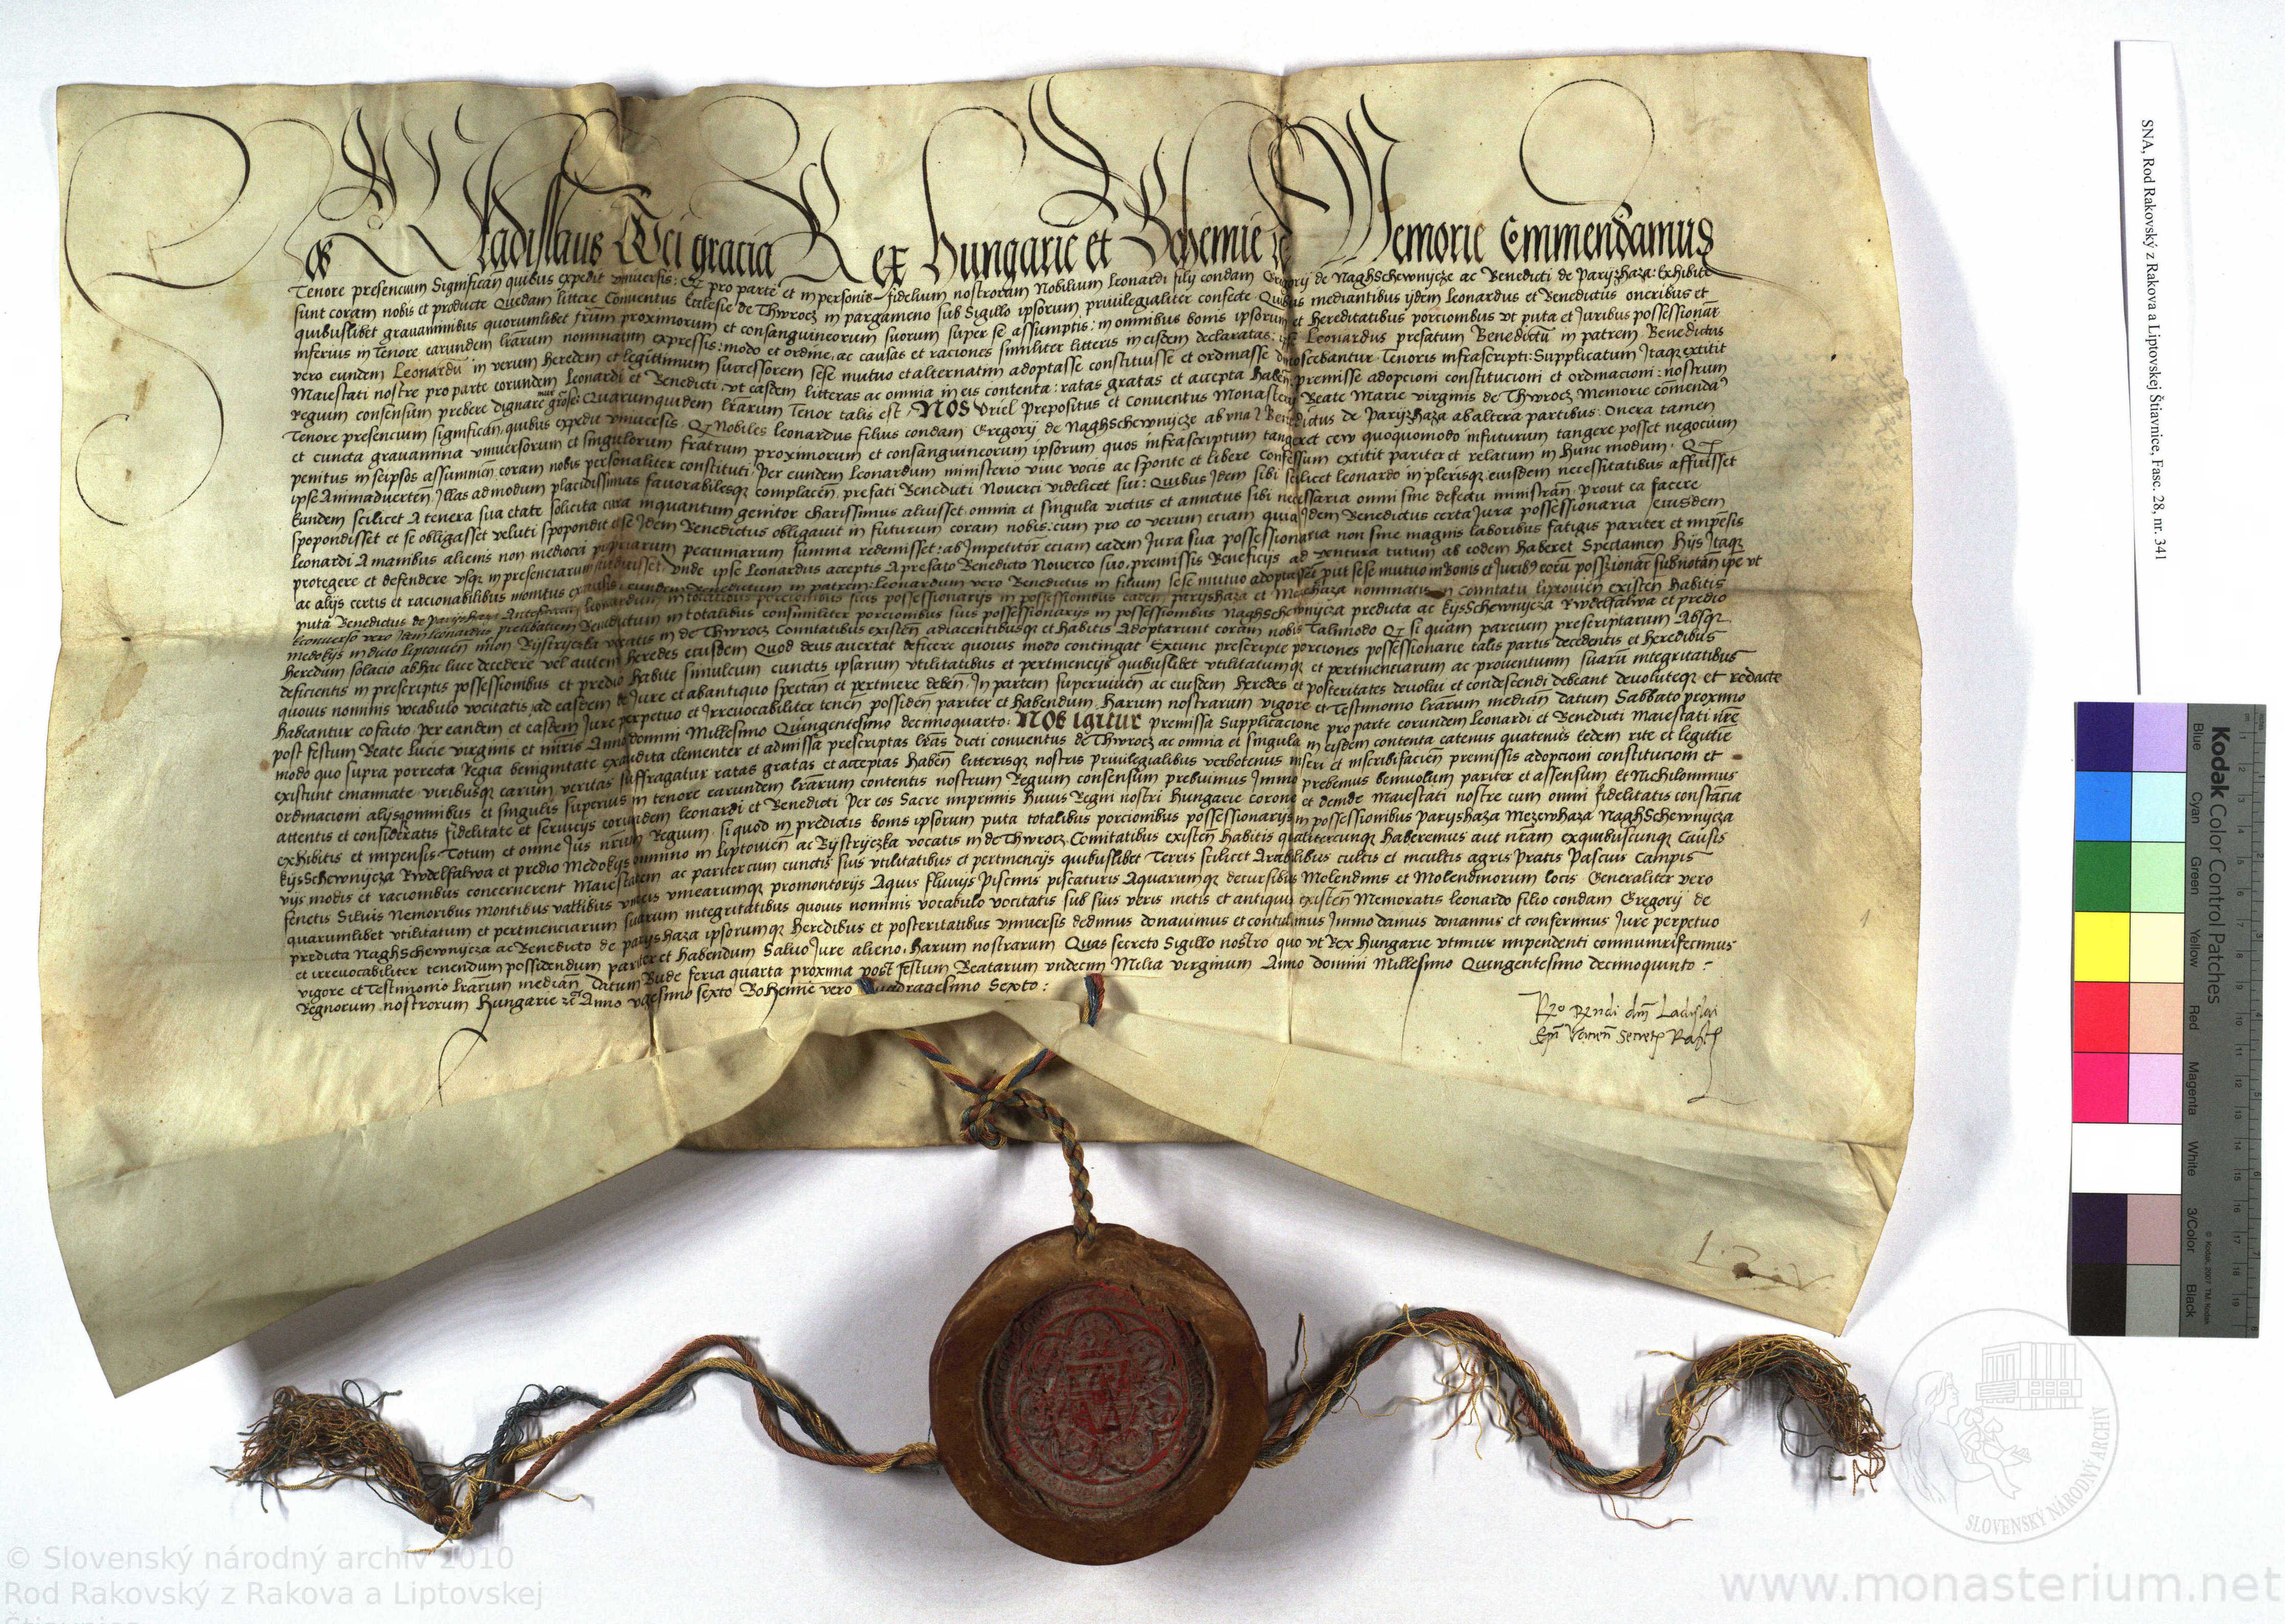 Nos Wladislaus Dei gracia Rex Hungarie et Bohemie etc Memorie Commendamus
Tenore presencium Significan̄ quibus expedit vniuersis: Qꝫ pro parte et in personis fidelium nostrorum Nobilium Leonardi filij condam Gregorij de Naghschewnycze ac Benedicti de Paryzhaza: Exhibite
sunt coram nobis et producte Quedam littere Conuentus Ecclesie de Thwrocz in pargameno sub Sigillo ipsorum priuilegialiter confecte. Quibus mediantibus ijdem Leonardus et Benedictus oneribus et
quibuslibet grauaminibus quorumlibet frūm proximorum et consanguineorum suorum super se assumptis: in omnibus bonis ipsorum et hereditatibus porcionibus vt puta et Juribus possessionar̄
inferius in Tenore earundem lrārum nominatim expressis: modo et ordine, ac causas et raciones similiter litteris in eisdem declaratas: ipse Leonardus prefatum Benedictū in patrem. Benedictus
vero eundem Leonardū in verum heredem et legittimum successorem sese mutuo et alternatim adoptasse constituisse et ordinasse dinoscebantur. Tenoris infrascripti: Supplicatum Itaqꝫ extitit
Maiestati nostre pro parte eorundem Leonardi et Benedicti, vt easdem litteras ac omnia in eis contenta: ratas gratas et accepta haben̄ premisse adopcioni constitucioni et ordinacioni: nostrum
regium consensum prebere dignaremur grōse: Quarumquidem lrārum Tenor talis est, NOS Vriel Prepositus et Conuentus Monasterij Beate Marie virginis de Thwrocz Memorie cōmendaꝰ
Tenore presencium significan̄, quibus expedit vniuersis. Qꝫ Nobiles Leonardus filius condam Gregorij de Naghschewnycze ab vna ⁊ Benedictus de Paryzhaza ab altera partibus: Onera tamen
et cuncta grauamina vniuersorum et singulorum fratrum proximorum et consanguineorum ipsorum quos infrascriptum tangeret cew quoquomodo infuturum tangere posset negocium
penitus in seipsos assummen̄, coram nobis personaliter constituti. Per eundem Leonardum ministerio viue vocis ac sponte et libere Confessum extitit pariter et relatum in hunc modum. Qꝫ
ipse Animaduerten̄. Illas admodum placidissimas fauorabilesqꝫ complacen̄. prefati Benedicti Nouerci videlicet sui: Quibus Idem sibi scilicet Leonardo in plerisqꝫ eiusdem necessitatibus affuisset
Eundem scilicet A tenera sua etate solicita cura inquantum genitor charissimus aluisset omnia et singula victus et amictus sibi necessaria omni sine defectu ministran̄. prout ea facere
spopondisset et se obligasset veluti spopondit esse Idem Benedictus obligauit in futurum coram nobis: cum pro eo verum eciam quia Idem Benedictus certa Jura possessionaria eiusdem
Leonardi A manibus alienis non mediocri propriarum pecuniarum summa redemisset: ab Impetitōr̄ eciam eadem Jura sua possessionaria non sine magnis laboribus fatigis pariter et impēsis
protegere et defendere vsqꝫ in presenciarum vnde ipse Leonardus acceptis A prefato Benedicto Nouerco suo, premissis Beneficijs ad ventura tutum ab eodem haberet Spectamen Hijs Itaqꝫ
ac alijs certis et racionabilibus monitus ex causis: eundem Benedictum in patrem: Leonardum vero Benedictus in filium sese mutuo adoptassen̄t put sese mutuo in Bonis et Juribꝰ eorū possessionar̄ subnotan̄ ipe vt
puta Benedictus de Paryshaza Antefatum Leonardum in totalibus porcionibus suis possessionarijs in possessionibus eadem paryshaza et Mezewhaza nominatis in Comitatu liptouien̄ existen̄ habitis
Econuerso vero Idem Leonardus prelibatum Benedictum in totalibus consimiliter porcionibus suis possessionarijs in possessionibus Naghschewnycza predicta ac kysSchewnycza Rwdelfalwa et predio
Medokys in dicto Liptouien̄ Bystryczka vocatis in de Thwrocz Comitatibus existen̄ adiacentibusqꝫ et habitis Adoptarunt coram nobis Talimodo Qꝫ si quam parcium prescriptarum Absqꝫ
heredum solacio ab hac luce decedere vel autem heredes eiusdem Quod deus auertat deficere quouis modo contingat Extunc prescripte porciones possessionarie talis partis decedentis et heredibus
deficientis in prescriptis possessionibus et predio habite simulcum cunctis ipsarum vtilitatibus et pertinencijs quibuslibet vtilitatumqꝫ et pertinenciarum ac prouentuum suarū integritatibus
quouis nominis vocabulo vocitatis, ad easdem de Jure et abantiquo spectan̄ et pertinere deben̄. In partem superuiuen̄ ac eiusdem heredes et posteritates deuolui et condescendi debeant deuoluteqꝫ et redacte
habeantur eo facto, per eandem et easdem Jure perpetuo et Irreuocabiliter tenen̄ possiden̄ pariter et habendum. Harum nostrarum vigore et Testimonio lrārum median̄ datum Sabbato proximo
post festum Beate Lucie virginis et mr̄ris Anno domini Millesimo Quingentesimo decimoquarto: NOS igitur premissa Supplicacione pro parte eorundem Leonardi et Benedicti Maiestati nr̄e
modo quo supra porrecta Regia benignitate exaudita clementer et admissa prescriptas lrās dicti conuentus de Thwrocz ac omnia et singula in eisdem contenta eatenus quatenus eedem rite et legitie
existunt emannate viribusqꝫ earum veritas suffragatur ratas gratas et acceptas haben̄ litterisqꝫ nostris priuilegialibus verbotenus inseri et inscribifacien̄ premissis adopcioni constitucioni et
ordinacioni alijsqꝫ omnibus et singulis superius in tenore earundem lrārum contentis nostrum Regium consensum prebuimus Immo prebemus beniuolum pariter et assensum Et Nichilominus
attentis et consideratis fidelitate et seruicijs eorundem Leonardi et Benedicti Per eos Sacre inprimis Huius Regni nostri Hungarie Corone et deinde Maiestati nostre cum omni fidelitatis constācia
exhibitis et impensis. Totum et omne Jus nrūm Regium. si quod in predictis bonis ipsorum puta totalibus porcionibus possessionarijs in possessionibus Paryshaza Mezewhaza NaghSchewnycza
kysSchewnycza Rwdelfalwa et predio Medokys omnino in Liptouien̄ ac Bystryczka vocatis in de Thwrocz. Comitatibus existen̄ habitis qualitercunqꝫ haberemus aut nrām exquibuscunqꝫ Causis
vijs modis et racionibus concernerent Maiestatem ac pariter cum cunctis suis vtilitatibus et pertinencijs quibuslibet Terris scilicet Arabilibus cultis et incultis agris Pratis Pascuis Campis
fenetis Siluis Nemoribus Montibus vallibus vineis vinearumqꝫ promontorijs Aquis fluuijs Piscinis piscaturis Aquarumqꝫ decursibus Molendinis et Molendinorum locis Generaliter vero
quarumlibet vtilitatum et pertinenciarum suarum integritatibus quouis nominis vocabulo vocitatis sub suis veris metis et antiquis existen̄ Memoratis Leonardo filio condam Gregorij de
predicta Naghschewnycza ac Benedicto de paryshaza ipsorumqꝫ heredibus et posteritatibus vniuersis dedimus donauimus et contulimus Immo damus donamus et conferimus Jure perpetuo
et irreuocabiliter tenendum possidendum pariter et habendum Saluo Jure alieno. Harum nostrarum Quas secreto Sigillo nostro quo vt Rex Hungarie vtimur impendenti communirifecimus
vigore et Testimonio lrārum median̄ Datum Bude feria quarta proxima post festum Beatarum vndecim Milia virginum Anno domini Millesimo Quingentesimo decimoquinto:
Regnorum nostrorum Hungarie ꝛc̄ Anno vigesimo sexto Bohemie vero Quadragesimo Sexto:
SNA, Rod Rakovský z Rakova a Liptovskej Štiavnice, Fasc. 28, nr. 341
Kodak Color Control Patches
Blue Cyan Green Yellow Red Magenta White 3/Color Black
SLOVENSKÝ NÁRODNÝ ARCHÍV
© Slovenský národný archív 2010
Rod Rakovský z Rakova a Liptovskej
Štiavnice
www.monasterium.net